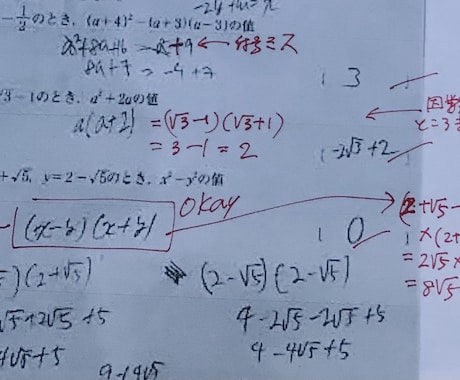 -1/3のとき, (a+4)²-(a+3)(a-3)の値
a²+8a+16 - a²+9 ← 符号ミス
8a+7 = -4+7
3
√3-1のとき, a²+2aの値
a(a+2) = (√3-1)(√3+1)
= 3-1 = 2
-2√3+2
+√5, y=2-√5のとき, x²-y²の値
(x-y)(x+y) Okay
0
(2+√5-
×(2+
= 2√5×
= 8√5
)(2+√5) (2-√5)(2-√5)
√5+2√5+5 4-2√5-2√5+5
4√5+5 4-4√5+5
9-4√5